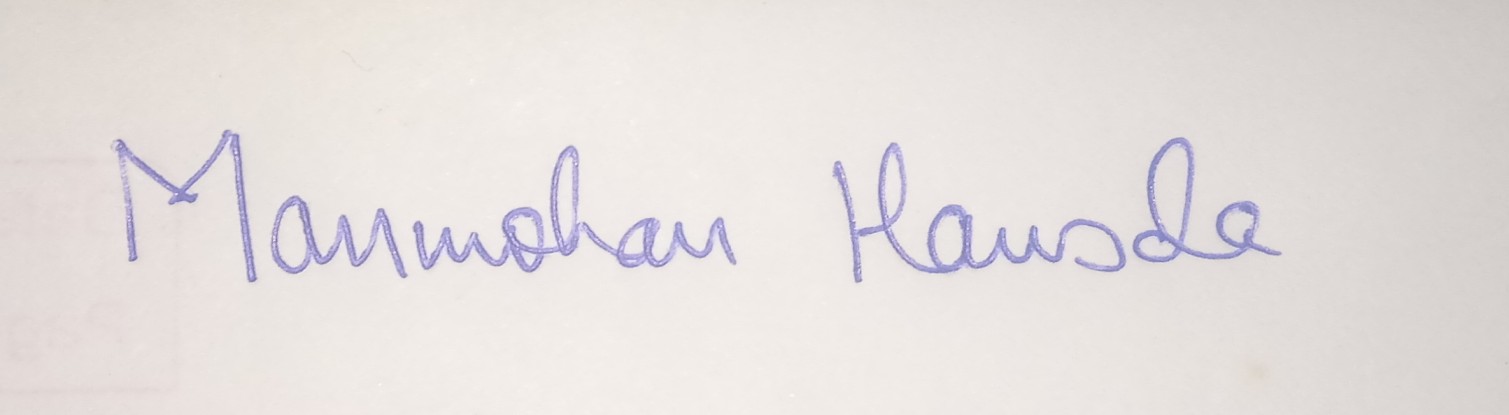 Manmohan Hansda